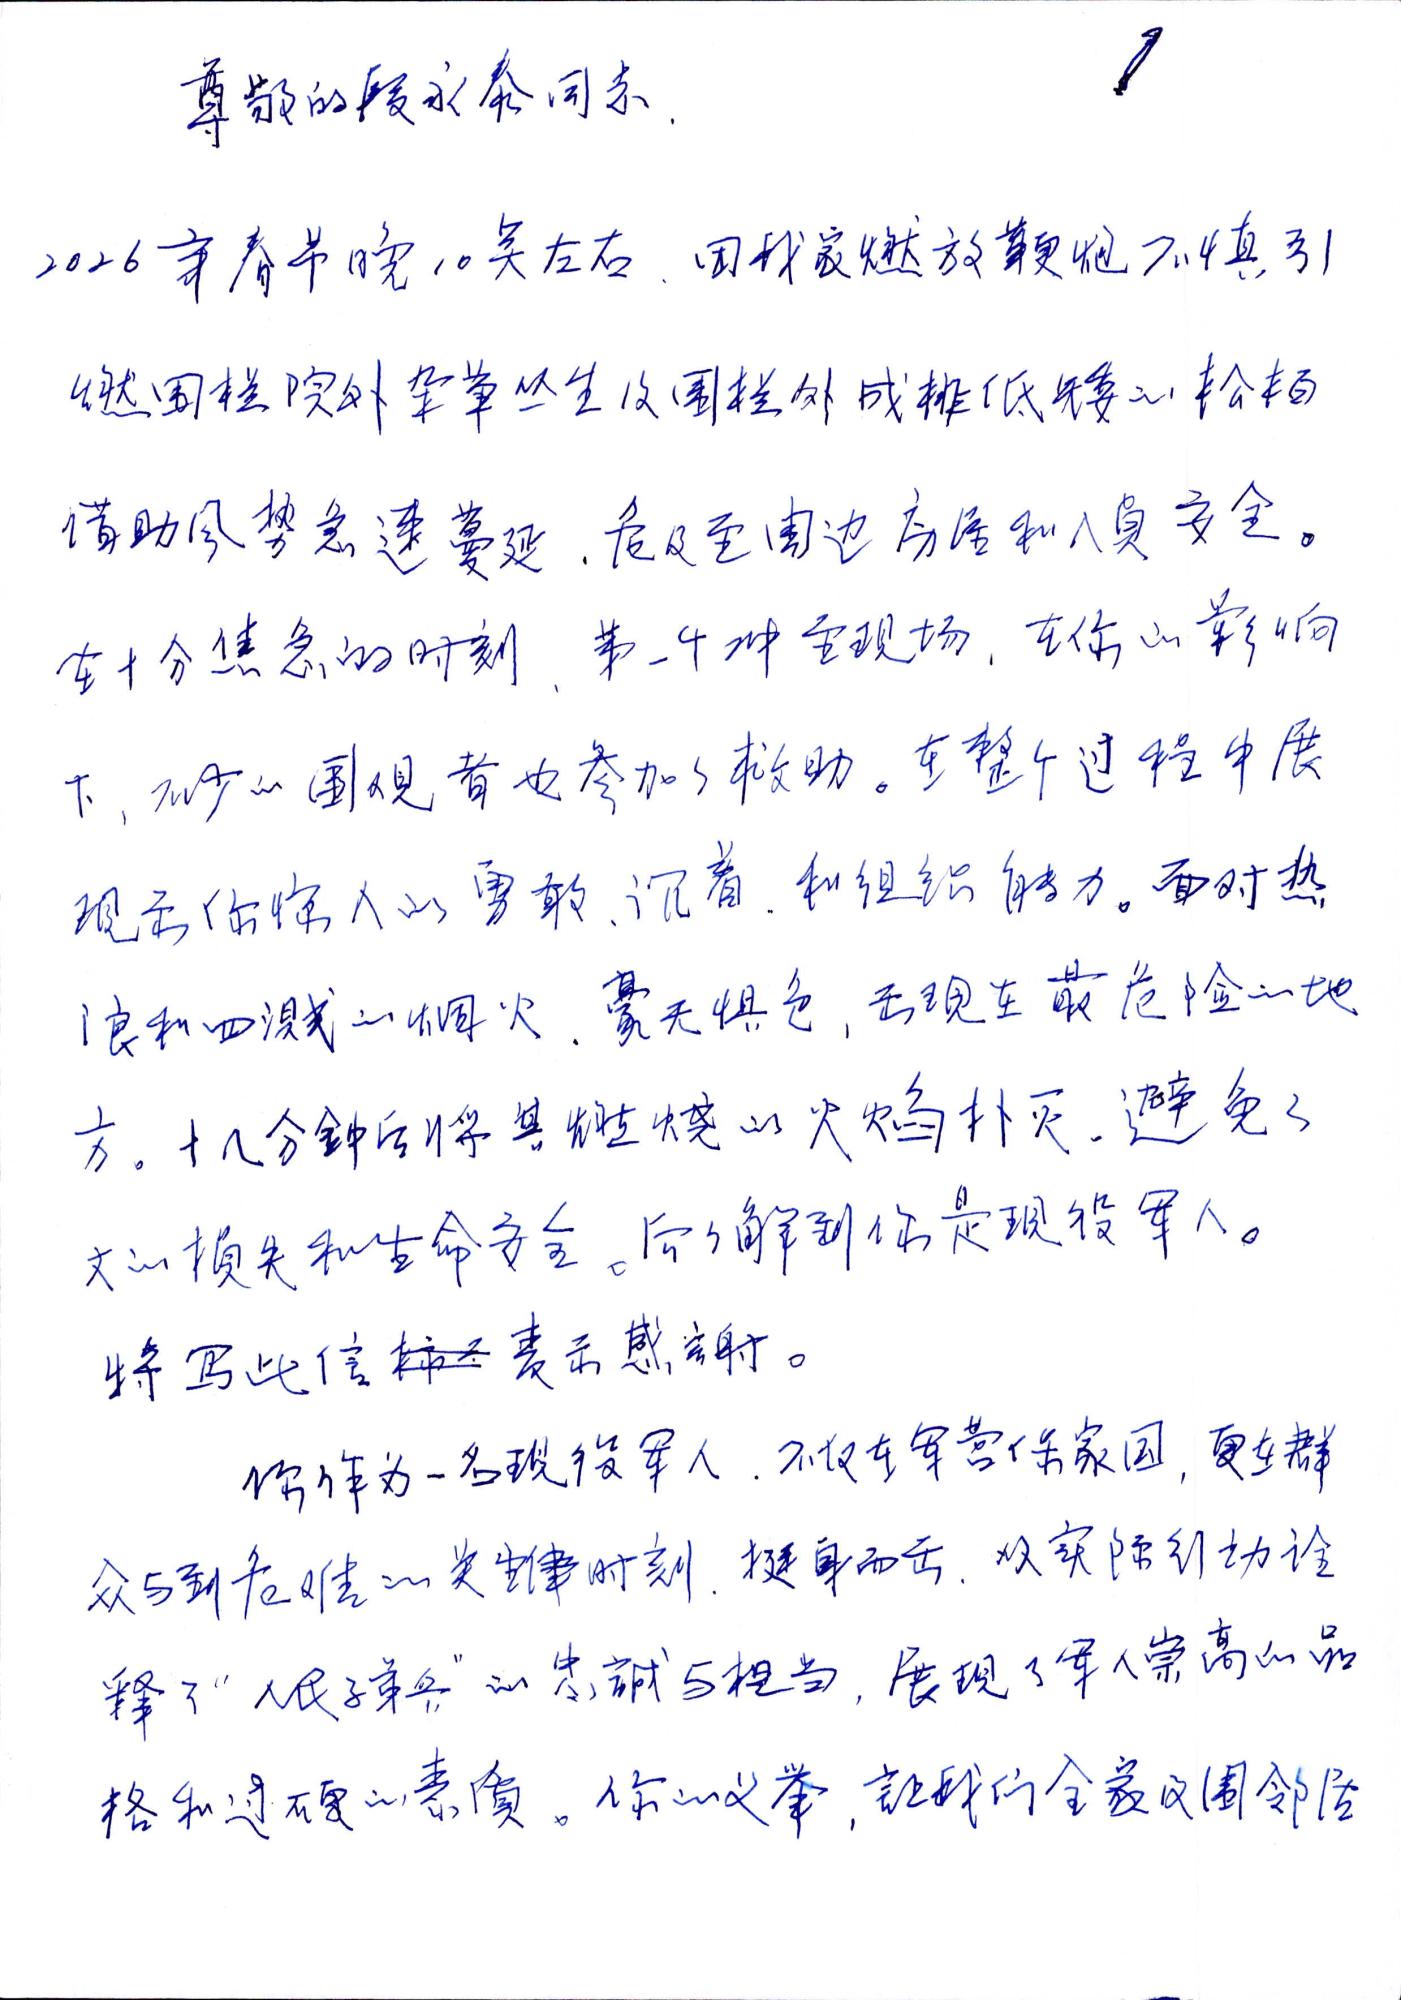 1
尊敬的段永泰同志.
2026年春节晚10点左右、因我家燃放鞭炮不慎引
燃围栏院外杂草丛生及围栏外成排低矮的松柏
借助风势急速蔓延、危及至周边房屋和人员安全。
在十分焦急的时刻、第一个冲至现场、在你的影响
下，不少的围观者也参加了救助。在整个过程中展
现示你惊人的勇敢、沉着、和组织能力。面对热
浪和四溅的烟火、毫无惧色，出现在最危险的地
方。十几分钟后将其燃烧的火焰扑灭、避免了
大的损失和生命安全。后了解到你是现役军人。
特写此信表示感谢。
你作为一名现役军人、不仅在军营保家国，更在群
众与到危难的关键时刻、挺身而出、以实际行动诠
释了“人民子弟兵”的忠誠与担当，展现了军人崇高的品
格和过硬的素质。你的义举，让我们全家及围邻居